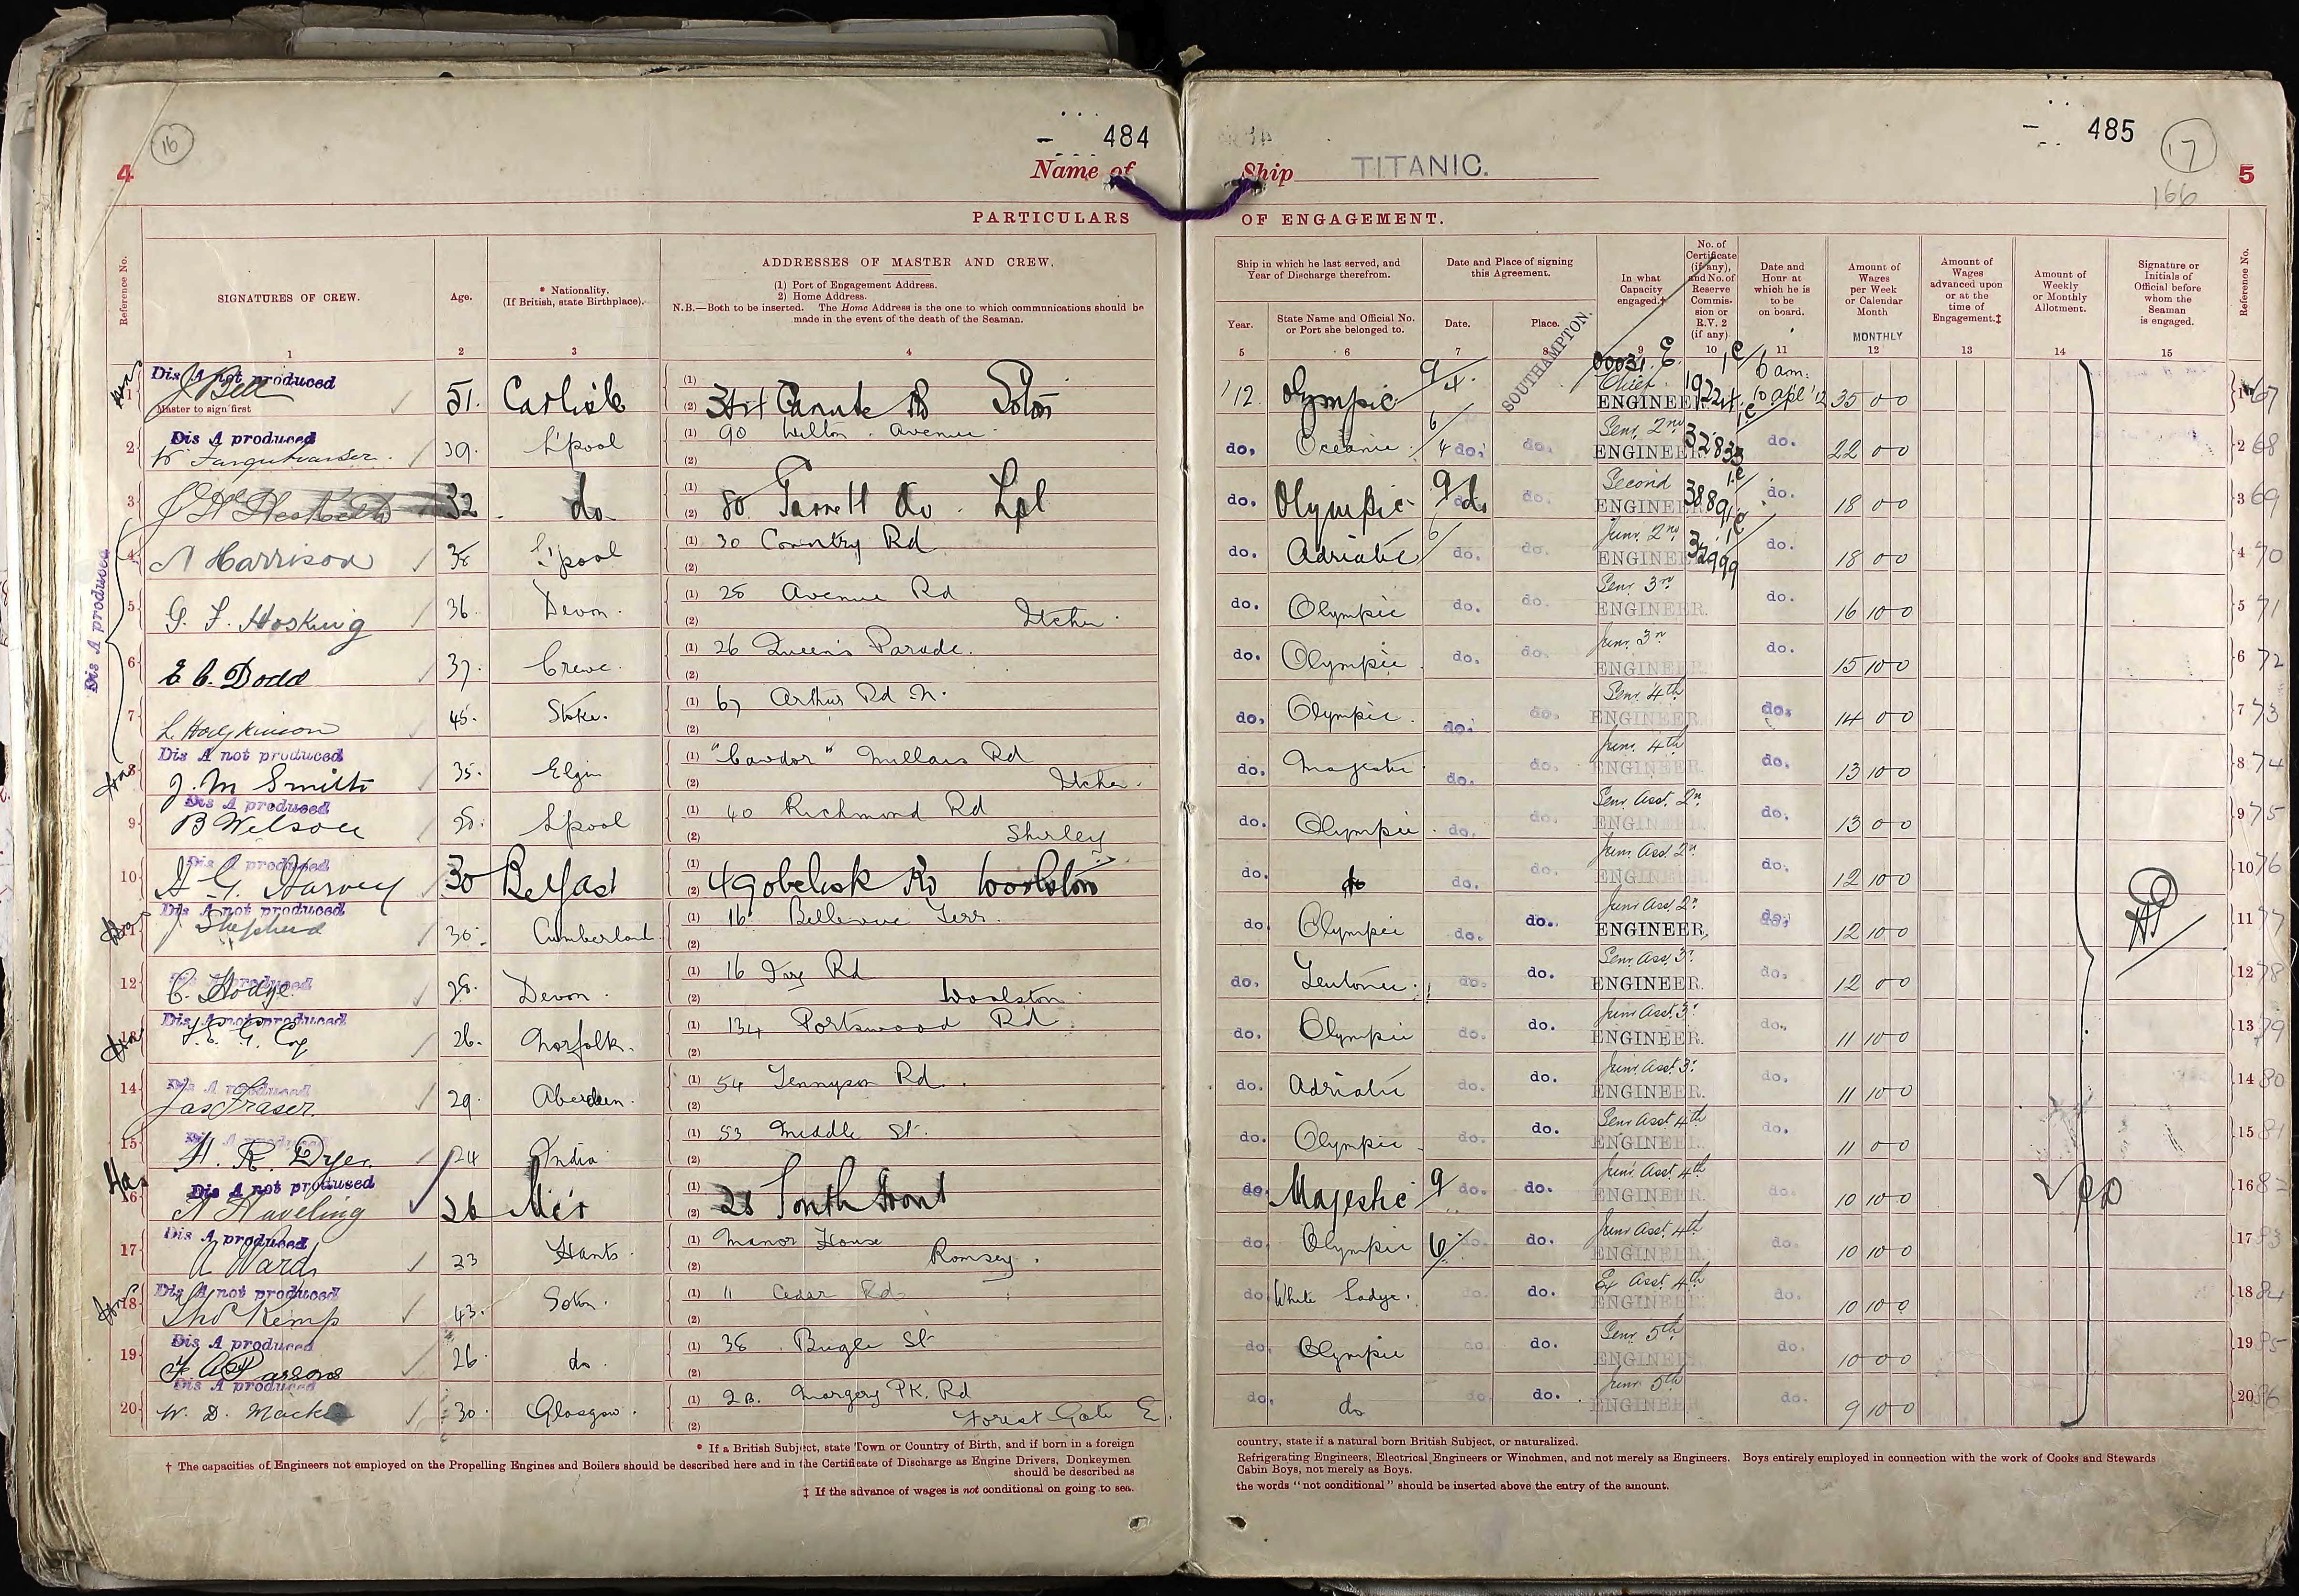 16
4
484
Name of
PARTICULARS
Reference No.
SIGNATURES OF CREW.
Age.
* Nationality.
(If British, state Birthplace).
ADDRESSES OF MASTER AND CREW.
(1) Port of Engagement Address.
2) Home Address.
N.B.—Both to be inserted. The Home Address is the one to which communications should be
made in the event of the death of the Seaman.
1 2 3 4
Dis A not produced
1 J Bell 51. Carlisle (1) (2) Canute Rd Soton
Master to sign first
Dis A produced
2 W Farquharson. 39. L'pool (1) 90 Wilton Avenue (2)
3 J H Hesketh 32 do (1) (2) 80 Garrett Av. Lpl
Dis A produced
4 N Harrison 38 L'pool (1) 30 Coventry Rd (2)
5 G. F. Hosking 36. Devon. (1) 28 Avenue Rd (2) Itchen
6 E C. Dodd 37. Crewe. (1) 26 Queen's Parade. (2)
7 L. Hodgkinson 45. Stoke. (1) 67 Arthur Rd N. (2)
Dis A not produced
8 J. M Smith 35. Elgin (1) "Cawdor" Millais Rd (2) Itchen.
Dis A produced
9 B Wilson 28. Lpool (1) 40 Richmond Rd (2) Shirley
Dis A produced
10 H G. Harvey 30 Belfast (1) (2) 49 obelisk Rd Woolston
Dis A not produced
11 J Shepherd 30. Cumberland (1) 16 Bellevue Terr. (2)
Dis A produced
12 C. Hodge 28. Devon. (1) 16 Ivy Rd (2) Woolston
Dis A not produced
13 F. E. G. Coy 26. Norfolk. (1) 134 Portswood Rd (2)
Dis A produced
14 Jas Fraser. 29. Aberdeen. (1) 54 Tennyson Rd. (2)
Dis A produced
15 H. R. Dyer. 24 India (1) 53 Middle St. (2)
Dis A not produced
16 A Haveling 26 (1) (2) 28 South Front
Dis A produced
17 A Ward 23 Hants. (1) Manor House (2) Romsey.
Dis A not produced
18 Thos Kemp 43. Soton. (1) 11 Cedar Rd (2)
Dis A produced
19 F A Parsons 26 do (1) 38 Bugle St (2)
Dis A produced
20 W. D. Mackie 30. Glasgow. (1) 2B. Margery PK. Rd (2) Forest Gate E.
* If a British Subject, state Town or Country of Birth, and if born in a foreign
† The capacities of Engineers not employed on the Propelling Engines and Boilers should be described here and in the Certificate of Discharge as Engine Drivers, Donkeymen
should be described as
‡ If the advance of wages is not conditional on going to sea.
485
17
166
5
Ship TITANIC.
OF ENGAGEMENT.
Ship in which he last served, and
Year of Discharge therefrom.
Year.
State Name and Official No.
or Port she belonged to.
Date and Place of signing
this Agreement.
Date.
Place.
In what
Capacity
engaged.†
No. of
Certificate
(if any),
and No. of
Reserve
Commis-
sion or
R.V. 2
(if any)
Date and
Hour at
which he is
to be
on board.
Amount of
Wages
per Week
or Calendar
Month
MONTHLY
Amount of
Wages
advanced upon
or at the
time of
Engagement.‡
Amount of
Weekly
or Monthly
Allotment.
Signature or
Initials of
Official before
whom the
Seaman
is engaged.
Reference No.
5 6 7 8 9 10 11 12 13 14 15
'12 Olympic 9/4. SOUTHAMPTON. Chief ENGINEER 6 am: 10 apl '12 35 0 0 1 67
do. Oceanic 6/4 do. do. Senr. 2nd ENGINEER 32833 do. 22 0 0 2 68
do. Olympic 9/ do do. Second ENGINEER 38891 do. 18 0 0 3 69
do. Adriatic 6/ do. do. Junr. 2nd ENGINEER 32999 do. 18 0 0 4 70
do. Olympic do. do. Senr. 3rd ENGINEER. do. 16 10 0 5 71
do. Olympic do. do. Junr. 3rd ENGINEER do. 15 10 0 6 72
do. Olympic do. do. Senr. 4th ENGINEER do. 14 0 0 7 73
do. Majestic do. do. Junr. 4th ENGINEER. do. 13 10 0 8 74
do. Olympic do. do. Senr Asst. 2n ENGINEER do. 13 0 0 9 75
do. do do. do. Junr. Asst 2n ENGINEER do. 12 10 0 10 76
do. Olympic do. do. Junr Asst 2n ENGINEER. do. 12 10 0 11 77
do. Teutonic. do. do. Senr Asst 3r ENGINEER. do. 12 0 0 12 78
do. Olympic do. do. Junr Asst. 3r ENGINEER. do. 11 10 0 13 79
do. Adriatic do. do. Junr Asst 3r ENGINEER. do. 11 10 0 14 80
do. Olympic do. do. Senr Asst 4th ENGINEER. do. 11 0 0 15 81
do. Majestic 9/ do. do. Junr Asst. 4th ENGINEER. do. 10 10 0 16 82
do. Olympic 6/ do. do. Junr Asst. 4th ENGINEER do. 10 10 0 17 83
do. White Ladye. do. do. Ex Asst. 4th ENGINEER do. 10 10 0 18 84
do. Olympic do. do. Senr. 5th ENGINEER do. 10 0 0 19 85
do. do do. do. Junr. 5th ENGINEER do. 9 10 0 20 86
country, state if a natural born British Subject, or naturalized.
Refrigerating Engineers, Electrical Engineers or Winchmen, and not merely as Engineers. Boys entirely employed in connection with the work of Cooks and Stewards
Cabin Boys, not merely as Boys.
the words "not conditional" should be inserted above the entry of the amount.